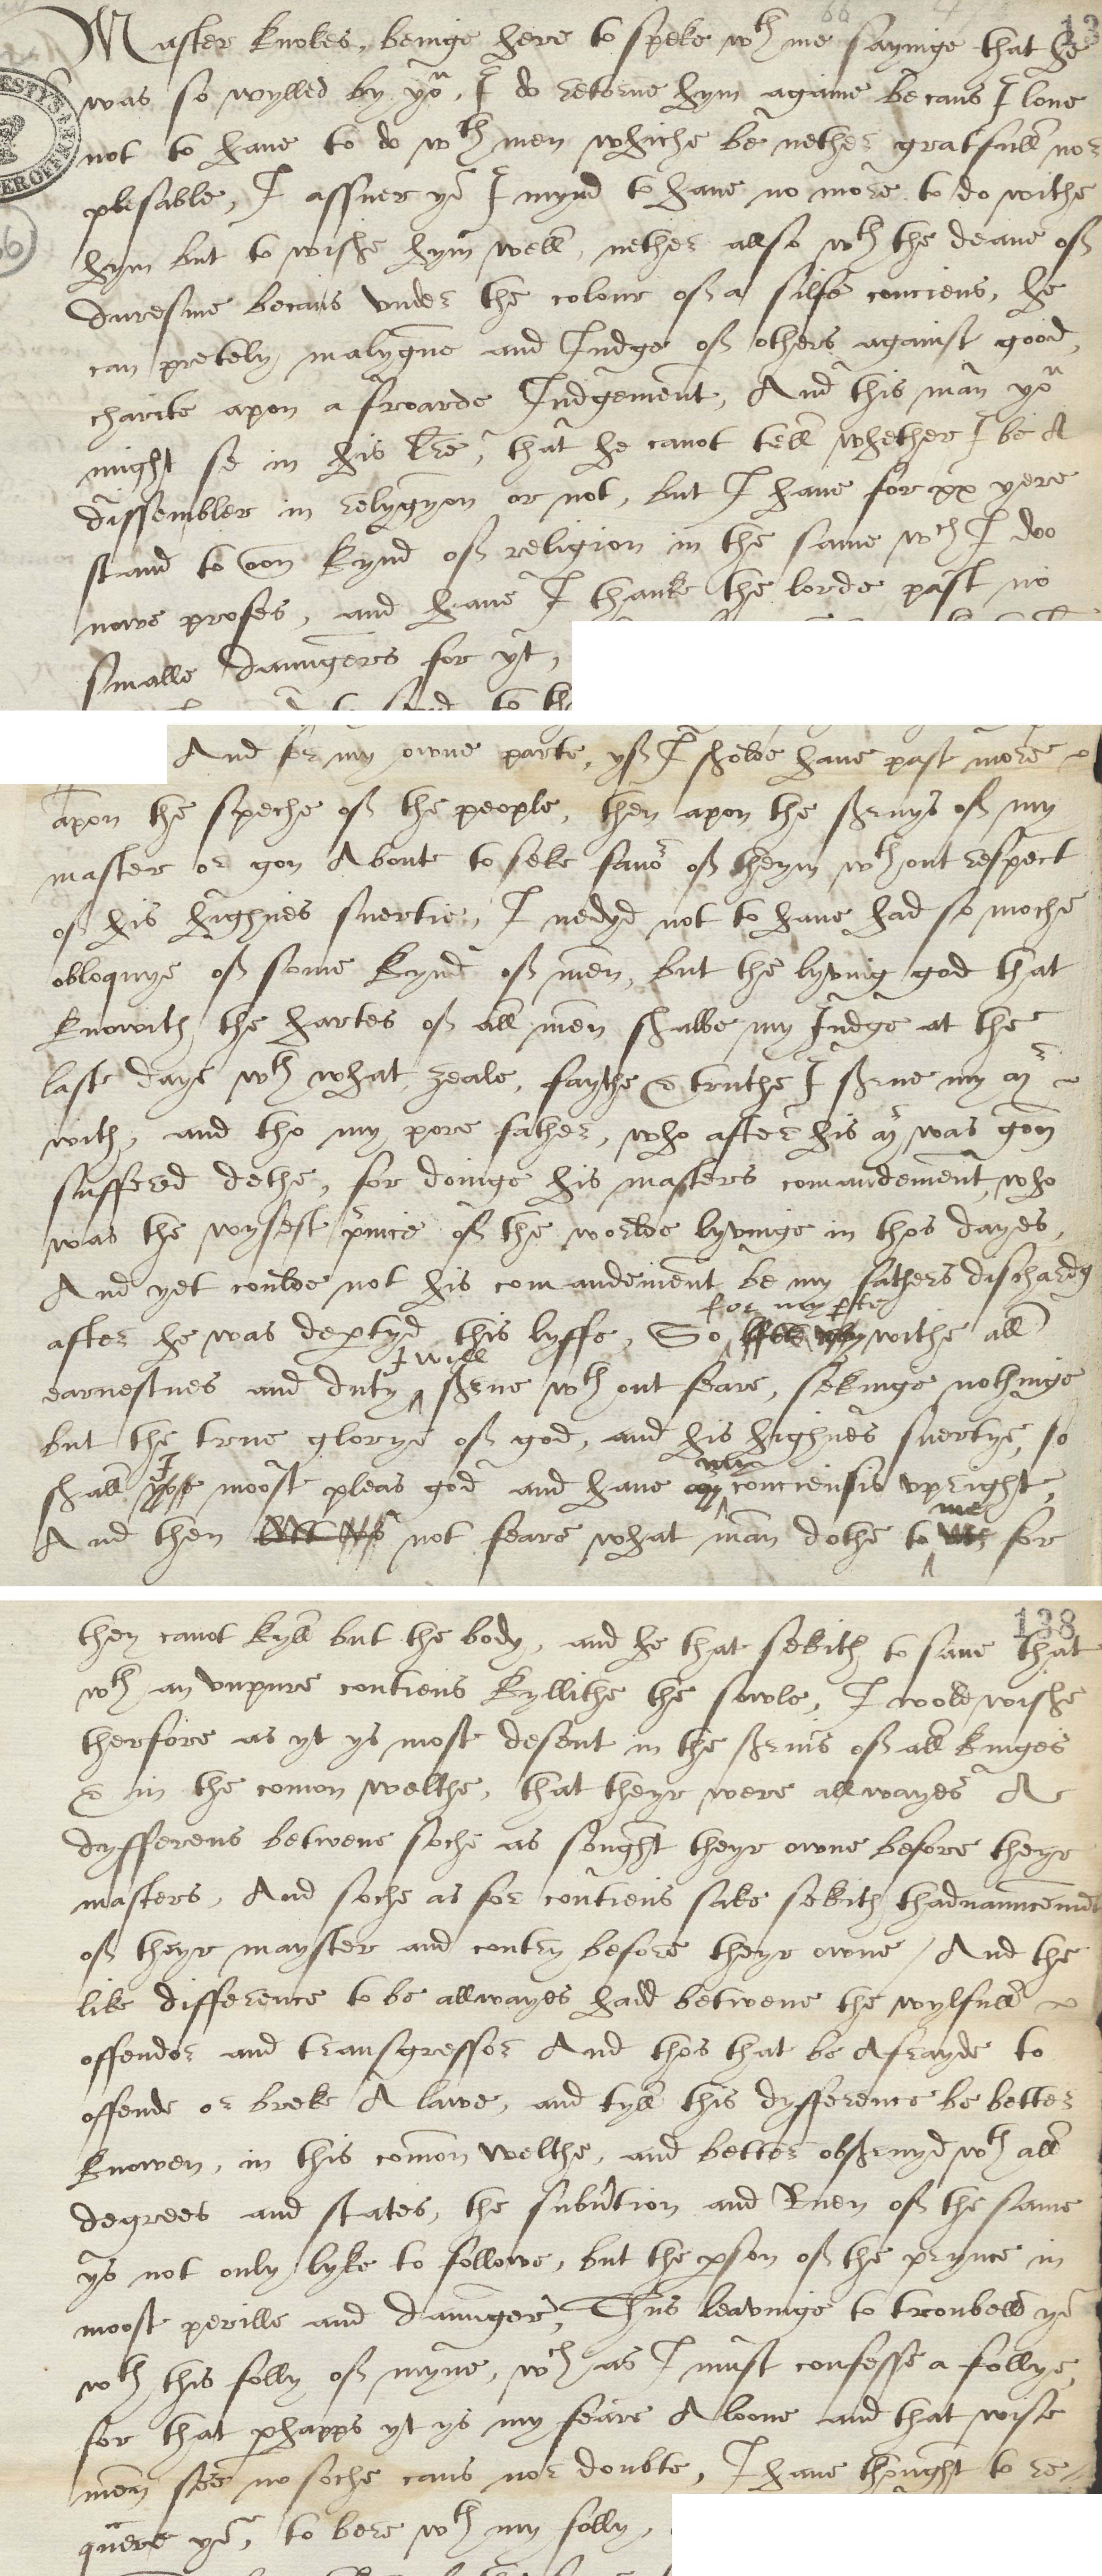 Master knokes, beinge here to speke wth me sayinge that he
was so wylled by yow, I do retorne hym againe becaus I love
not to have to do wth men whiche be nether gratfull nor
plesable, I assuer yow I mynd to have no more to do withe
hym but to wishe hym well, nether allso wth the deane off
duresme becaus under the colour off a silfe conciens, he
can pretely malygne and Judge off others against good
charite apon a froarde Judgement, And this man yow
might se in his lre, that he canot tell whether I be A
dissembler in relygyon or not, but I have for xx yere
stand to oon kynd off religion in the same wch I doo
nowe profes, and have I thanke the lorde past no
smalle daungers for yt,
And for my owne parte, yff I sholde have past more
apon the speche off the people, then apon the servys off my
master or gon About to seke favor off theym wthout respect
off his highnes suertie, I nedyd not to have had so moche
obloquye off some kynd off men, but the lyving god that
knowith the hartes off all men shalbe my Judge at the
last daye wth what zeale, faythe & truthe I serve my mr
with, and tho my pore father, who after his mr was gon
suffered dethe, for doinge his masters comandement who
was the wysest prince off the worlde lyvinge in thos dayes,
And yet coulde not his comandement be my fathers dischardg
after he was departyd this lyffe, So for my pte withe all
earnestnes and duty I will serve wth out feare, sekinge nothinge
but the true glorye off god, and his highnes suertye, so
shall I moost pleas god and have my conciensis upright,
And then not feare what man dothe to me for
138
they canot kyll but the body, and he that sekith to save that
wth an unpure contiens kyllithe the sowle, I wold wishe
therfore as yt ys most desent in the servis off all kinges
& in the comon welthe, that theyr were allwayes A
dyfferens betwene soche as sought theyr owne before theyr
masters, And soche as for contiens sake sekith thadvauncemt
off theyr mayster and contry before theyr owne / And the
like difference to be allwayes hadd betwene the wylfull
offendor and transgressor And thos that be Afrayde to
offende or breke A lawe, and tyll this dyfference be better
knowen, in this comon welthe, and better observyd wth all
degrees and states, the subvertion and Ruen off the same
ys not only lyke to followe, but the pson off the prynce in
moost perille and daunger, Thus leavinge to troubell yow
wth this folly off myne, wch as I must confesse a follye,
for that phapps yt ys my feare Aloone and that wise
men see no soche caus nor doubte, I have thought to re-
quere yow, to bere wth my folly,